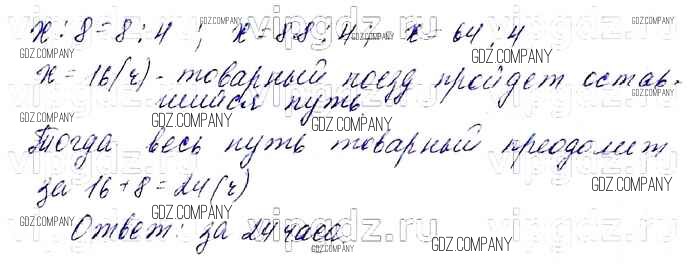 x : 8 = 8 : 4 ; x = 8·8 : 4 ; x = 64 : 4
x = 16 (ч) - товарный поезд пройдет остав-
шийся путь.
Тогда весь путь товарный преодолит
за 16 + 8 = 24 (ч)
Ответ: за 24 часа.